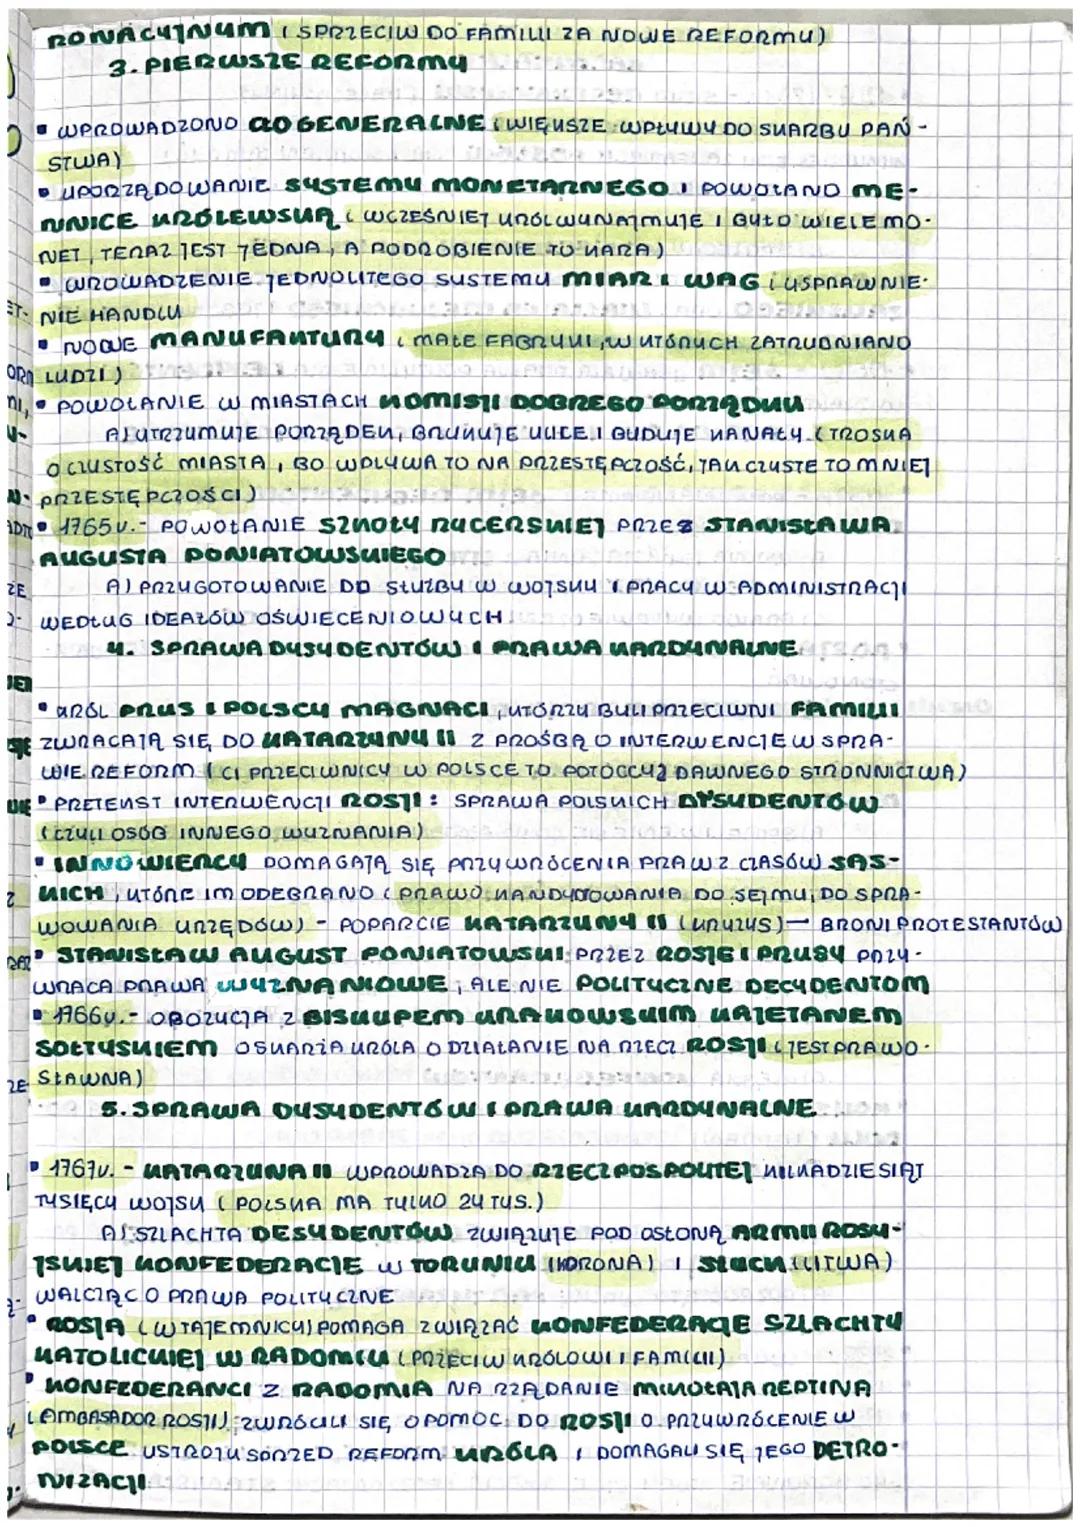 RONACYJNYM (SPRZECIW DO FAMILII ZA NOWE REFORMY)
3. PIERWSZE REFORMY
▪ WPROWADZONO CŁO GENERALNE (WIĘKSZE WPŁYWY DO SKARBU PAŃ-
STWA)
▪ UPORZĄDOWANIE SYSTEMU MONETARNEGO I POWOŁANO ME-
NNICE KRÓLEWSKĄ (WCZEŚNIEJ KRÓL WYNAJMUJE I BYŁO WIELE MO-
NET, TERAZ JEST JEDNA, A PODROBIENIE TO KARA)
▪ WROWADZENIE JEDNOLITEGO SYSTEMU MIAR I WAG (USPRAWNIE-
NIE HANDLU
▪ NOWE MANUFAKTURY (MAŁE FABRYKI, W KTÓRYCH ZATRUDNIANO
LUDZI)
▪ POWOŁANIE W MIASTACH KOMISJI DOBREGO PORZĄDKU
A) UTRZYMUJE PORZĄDEK, BRUKUJE ULICE I BUDUJE KANAŁY (TROSKA
O CZYSTOŚĆ MIASTA, BO WPŁYWA TO NA PRZESTĘPCZOŚĆ, JAK CZYSTE TO MNIEJ
PRZESTĘPCZOŚCI)
▪ 1765 r. - POWOŁANIE SZKOŁY RYCERSKIEJ PRZEZ STANISŁAWA
AUGUSTA PONIATOWSKIEGO
A) PRZYGOTOWANIE DO SŁUŻBY W WOJSKU I PRACY W ADMINISTRACJI
WEDŁUG IDEAŁÓW OŚWIECENIOWYCH
4. SPRAWA DYSYDENTÓW I PRAWA KARDYNALNE
▪ KRÓL PRUS I POLSCY MAGNACI, KTÓRZY BYLI PRZECIWNI FAMILII
ZWRACAJĄ SIĘ DO KATARZYNY II Z PROŚBĄ O INTERWENCJE W SPRA-
WIE REFORM (CI PRZECIWNICY W POLSCE TO POTOCCY Z DAWNEGO STRONNICTWA)
▪ PRETEKST INTERWENCJI ROSJI: SPRAWA POLSKICH DYSYDENTÓW
(CZYLI OSÓB INNEGO WYZNANIA)
▪ INNOWIERCY DOMAGAJĄ SIĘ PRZYWRÓCENIA PRAW Z CZASÓW SAS-
KICH, KTÓRE IM ODEBRANO (PRAWO KANDYDOWANIA DO SEJMU, DO SPRA-
WOWANIA URZĘDÓW) - POPARCIE KATARZYNY II (KRYZYS) — BRONI PROTESTANTÓW
▪ STANISŁAW AUGUST PONIATOWSKI PRZEZ ROSJE I PRUSY PRZY-
WRACA PRAWA WYZNANIOWE, ALE NIE POLITYCZNE DECYDENTOM
▪ 1766 r. - OPOZYCJA Z BISKUPEM KRAKOWSKIM KAJETANEM
SOŁTYSKIEM OSKARŻA KRÓLA O DZIAŁANIE NA RZECZ ROSJI (JEST PRAWO-
SŁAWNA)
5. SPRAWA DYSYDENTÓW I PRAWA KARDYNALNE
▪ 1767 r. - KATARZYNA II WPROWADZA DO RZECZPOSPOLITEJ KILKADZIESIĄT
TYSIĘCY WOJSK (POLSKA MA TYLKO 24 TYS.)
A) SZLACHTA DESYDENTÓW ZWIĄZUJE POD OSŁONĄ ARMII ROSY-
JSKIEJ KONFEDERACJE W TORUNIU (KORONA) I SŁUCK (LITWA)
WALCZĄC O PRAWA POLITYCZNE
▪ ROSJA (W TAJEMNICY) POMAGA ZWIĄZAĆ KONFEDERACJE SZLACHTY
KATOLICKIEJ W RADOMIU (PRZECIW KRÓLOWI I FAMILII)
▪ KONFEDERANCI Z RADOMIA NA RZĄDANIE MIKOŁAJA REPTINA
(AMBASADOR ROSJI) ZWRÓCILI SIĘ O POMOC DO ROSJI O PRZYWRÓCENIE W
POLSCE USTROJU SPRZED REFORM KRÓLA I DOMAGALI SIĘ JEGO DETRO-
NIZACJI